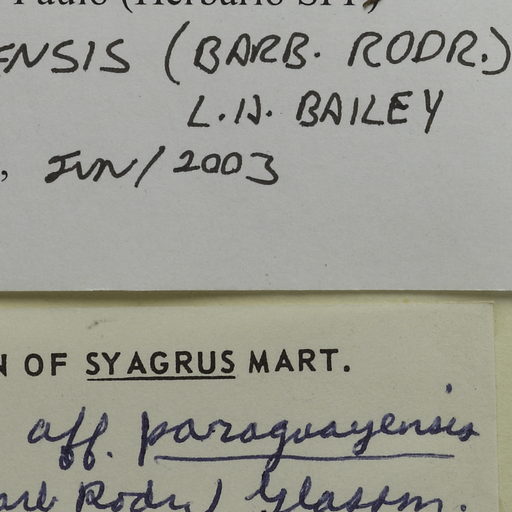 Paulo (Herbário SPF)
ENSIS (BARB. RODR.)
L.H. BAILEY
, JUN/2003
N OF SYAGRUS MART.
aff. paraguayensis
arb Rodr) Glassm.